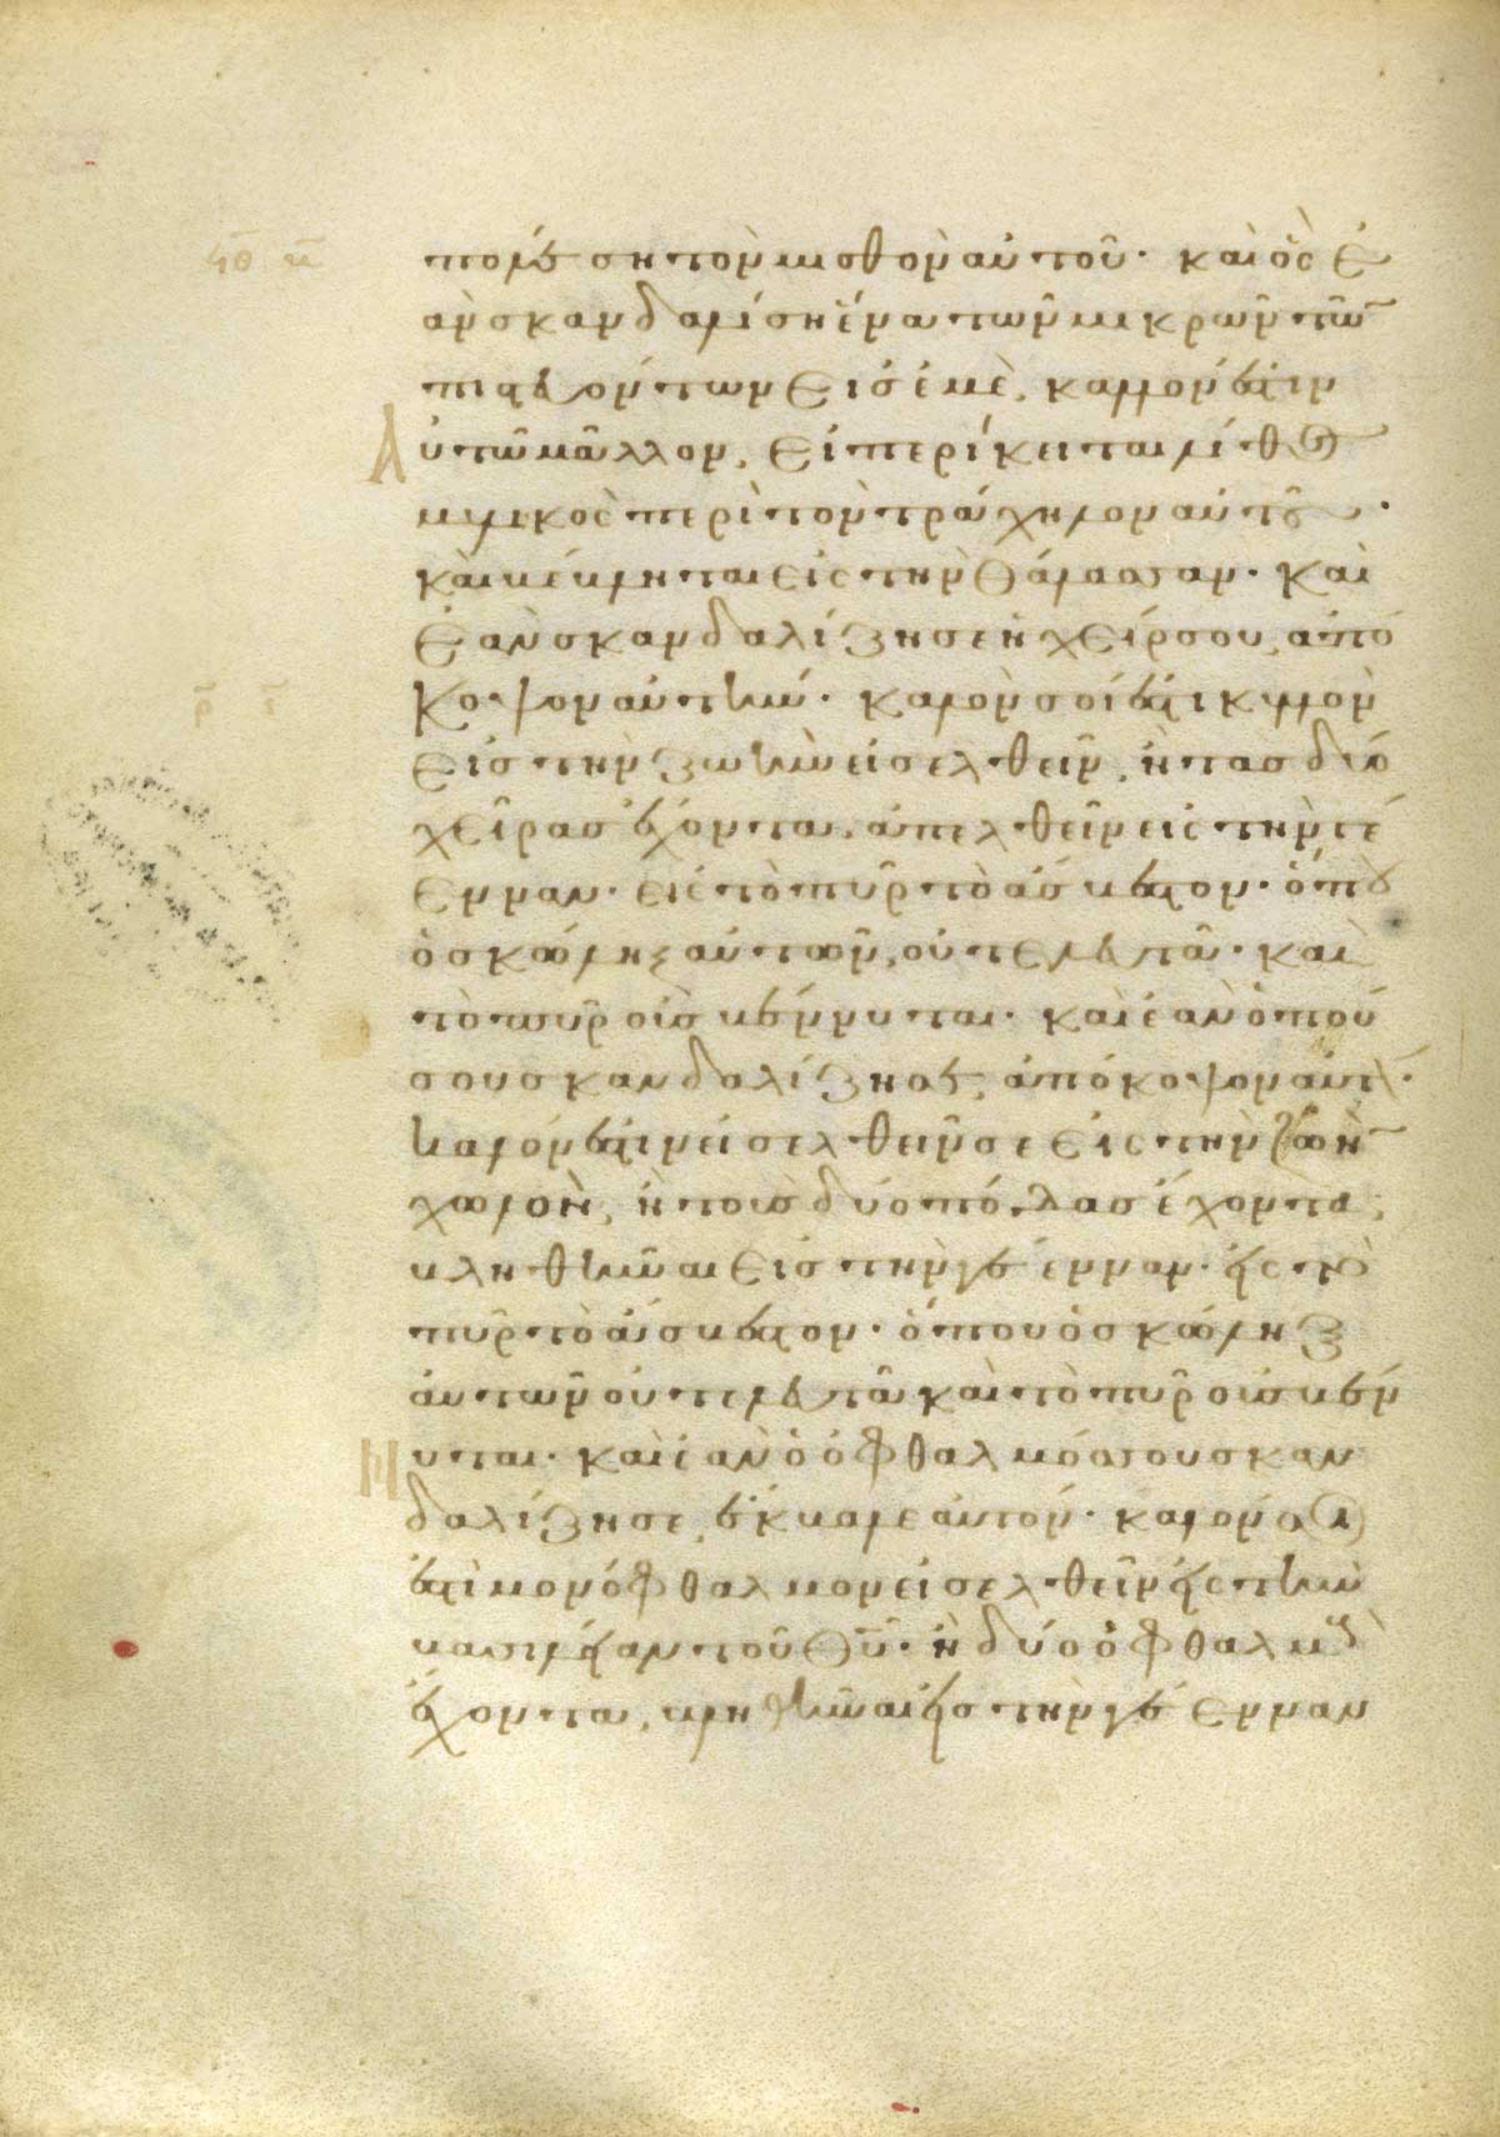 ϟθ β
πολέση τὸν μισθὸν αὐτοῦ· καὶ ὃς ἐ
ὰν σκανδαλίση ἕνα τῶν μικρῶν τῶ̅
πιστευόντων εἰς ἐμὲ, καλλόν ἐστιν
Αὐτῶ μᾶλλον, εἰ περίκειται λίθος
μυλικὸς περὶ τὸν τράχηλον αὐτοῦ·
καὶ βέβληται εἰς τὴν θάλασσαν· καὶ
ἐὰν σκανδαλίζη σε ἡ χείρ σου, ἀπό
κοψον αὐτήν· καλόν σοί ἐστι κυλλὸν
εἰς τὴν ζωὴν εἰσελθεῖν, ἢ τὰς δύο
χεῖρας ἔχοντα, ἀπελθεῖν εἰς τὴν γέ
ενναν· εἰς τὸ πῦρ τὸ ἄσβεστον· ὅπου
ὁ σκώληξ αὐτῶν, οὐ τελευτᾶ· καὶ
τὸ πῦρ οὐ σβέννυται· καὶ ἐὰν ὁ πού
σου σκανδαλίζη σε, ἀπόκοψον αὐτ·
καλόν ἐστιν εἰσελθεῖν σε εἰς τὴν ζωὴ̅
χωλὸν, ἢ τοὺς δύο πόδας ἔχοντα,
βληθῆναι εἰς τὴν γέενναν· εἰς τὸ
πῦρ τὸ ἄσβεστον· ὅπου ὁ σκώληξ
αὐτῶν οὐ τελευτᾶ καὶ τὸ πῦρ οὐ σβέν
νυται· καὶ ἐὰν ὁ ὀφθαλμός σου σκαν
δαλίζη σε, ἔκβαλε αὐτόν· καλόν σοι
ἐστὶ μονόφθαλμον εἰσελθεῖν εἰς τὴν
βασιλείαν τοῦ θυ̅· ἢ δύο ὀφθαλμοὺς
ἔχοντα, βληθῆναι εἰς τὴν γέενναν